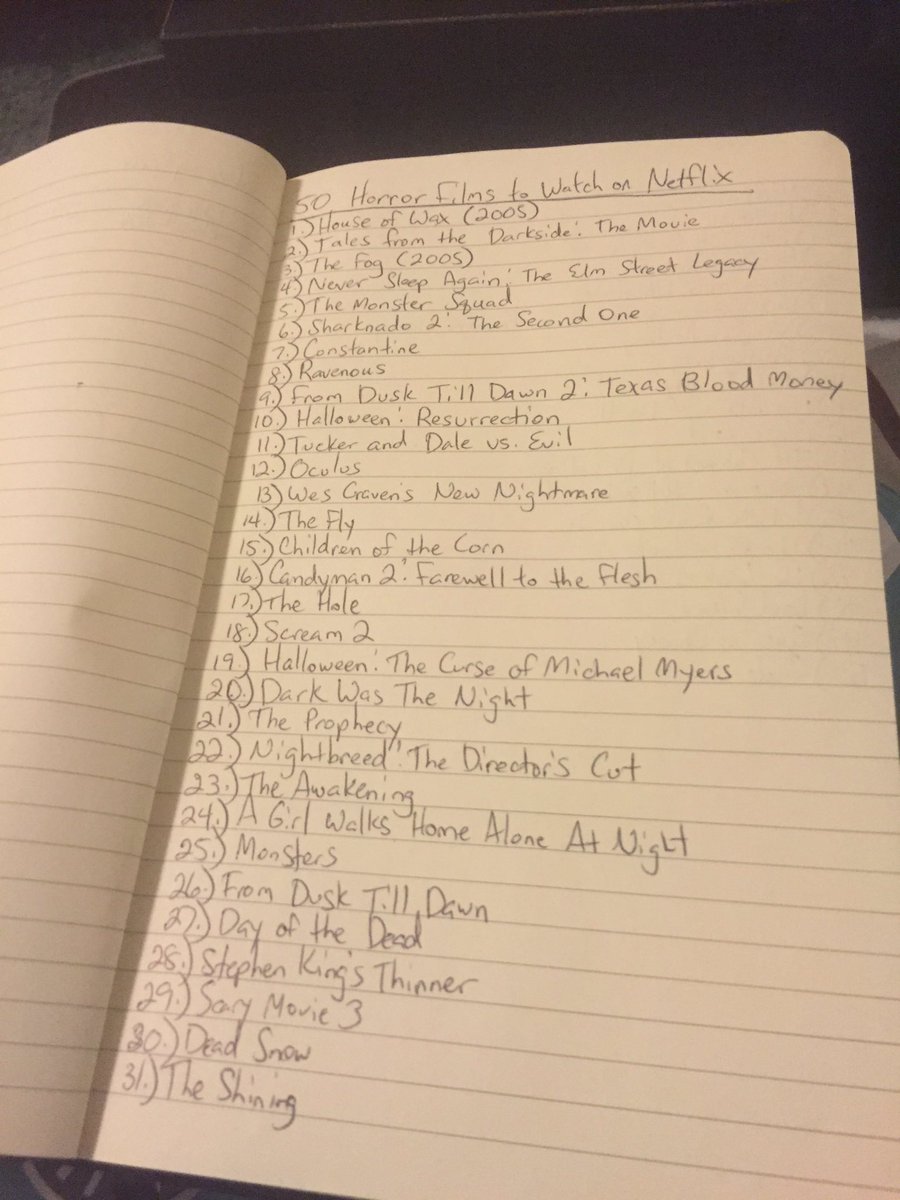 50 Horror Films to Watch on Netflix
1.) House of Wax (2005)
2.) Tales from the Darkside: The Movie
3.) The Fog (2005)
4.) Never Sleep Again: The Elm Street Legacy
5.) The Monster Squad
6.) Sharknado 2: The Second One
7.) Constantine
8.) Ravenous
9.) From Dusk Till Dawn 2: Texas Blood Money
10.) Halloween: Resurrection
11.) Tucker and Dale vs. Evil
12.) Oculus
13.) Wes Craven's New Nightmare
14.) The Fly
15.) Children of the Corn
16.) Candyman 2: Farewell to the Flesh
17.) The Hole
18.) Scream 2
19.) Halloween: The Curse of Michael Myers
20.) Dark Was The Night
21.) The Prophecy
22.) Nightbreed: The Director's Cut
23.) The Awakening
24.) A Girl Walks Home Alone At Night
25.) Monsters
26.) From Dusk Till Dawn
27.) Day of the Dead
28.) Stephen King's Thinner
29.) Scary Movie 3
30.) Dead Snow
31.) The Shining